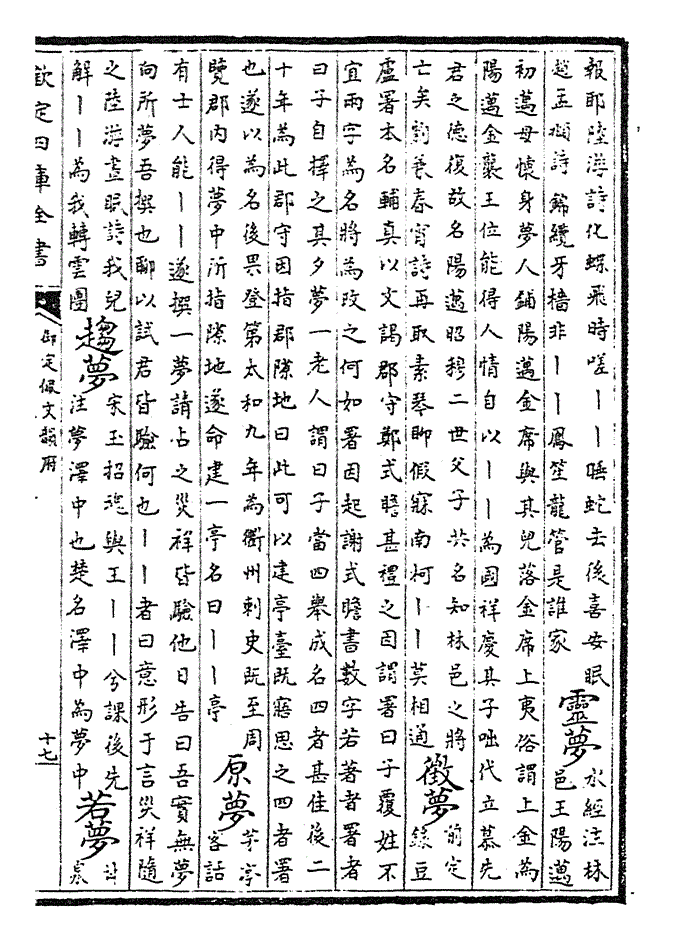 報耶陸游詩化蝶飛時嗟丨丨睡蛇去後喜安眠
趙孟頫詩錦纜牙檣非丨丨鳳笙龍管是誰家
靈夢
水經注林
邑王陽邁
初邁母懷身夢人鋪陽邁金席與其兒落金席上夷俗謂上金為
陽邁金襲王位能得人情自以丨丨為國祥慶其子咄代立慕先
君之德復故名陽邁昭穆二世父子共名知林邑之將
亡矣劉兼春宵詩再取素琴聊假寐南柯丨丨莫相通
徵夢
前定
錄豆
盧署本名輔真以文謁郡守鄭式瞻甚禮之因謂署曰子覆姓不
宜兩字為名將為改之何如署因起謝式瞻書數字若著者署者
曰子自擇之其夕夢一老人謂曰子當四舉成名四者甚佳後二
十年為此郡守因指郡隙地曰此可以建亭臺既寤思之四者署
也遂以為名後果登第太和九年為衢州刺史既至周
覽郡內得夢中所指隙地遂命建一亭名曰丨丨亭
原夢
茅亭
客話
有士人能丨丨遂撰一夢請占之災祥皆驗他日告曰吾實無夢
向所夢吾撰也聊以試君皆驗何也丨丨者曰意形于言災祥隨
之陸游晝眠詩我兒
解丨丨為我轉雲團
趨夢
宋玉招魂與王丨丨兮課後先
注夢澤中也楚名澤中為夢中
若夢
欽定四庫全書
御定佩文韻府
十七